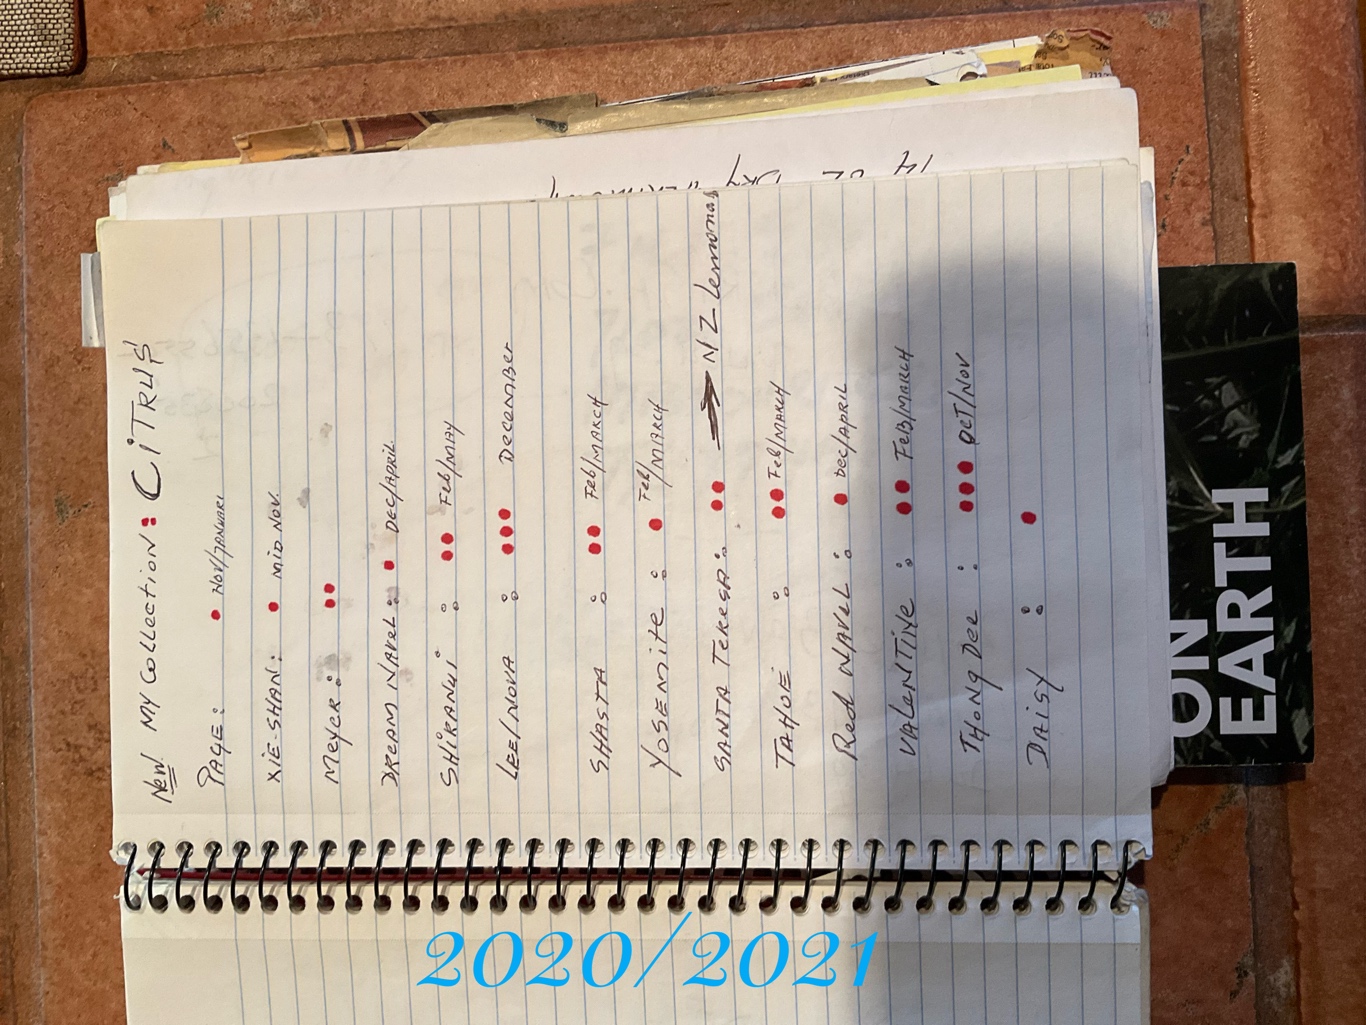 New! My Collection: CiTRUS
PAGE: NOV/JANUARI
XIE-SHAN: MID NOV.
Meyer:
DREAM NAVEL: DEC/APRIL
SHiRANUi: Feb/MAY
LEE/NOVA: December
SHASTA: Feb/MARCH
YOSEMITE: Feb/MARCH
SANTA TERESA: → NZ Lemona
TAHOE: Feb/MARCH
Red NAVEL: Dec/APRIL
VALENTINE: FEB/MARCH
THONG Dee: OCT/NOV
DAISY:
ON
EARTH
2020/2021